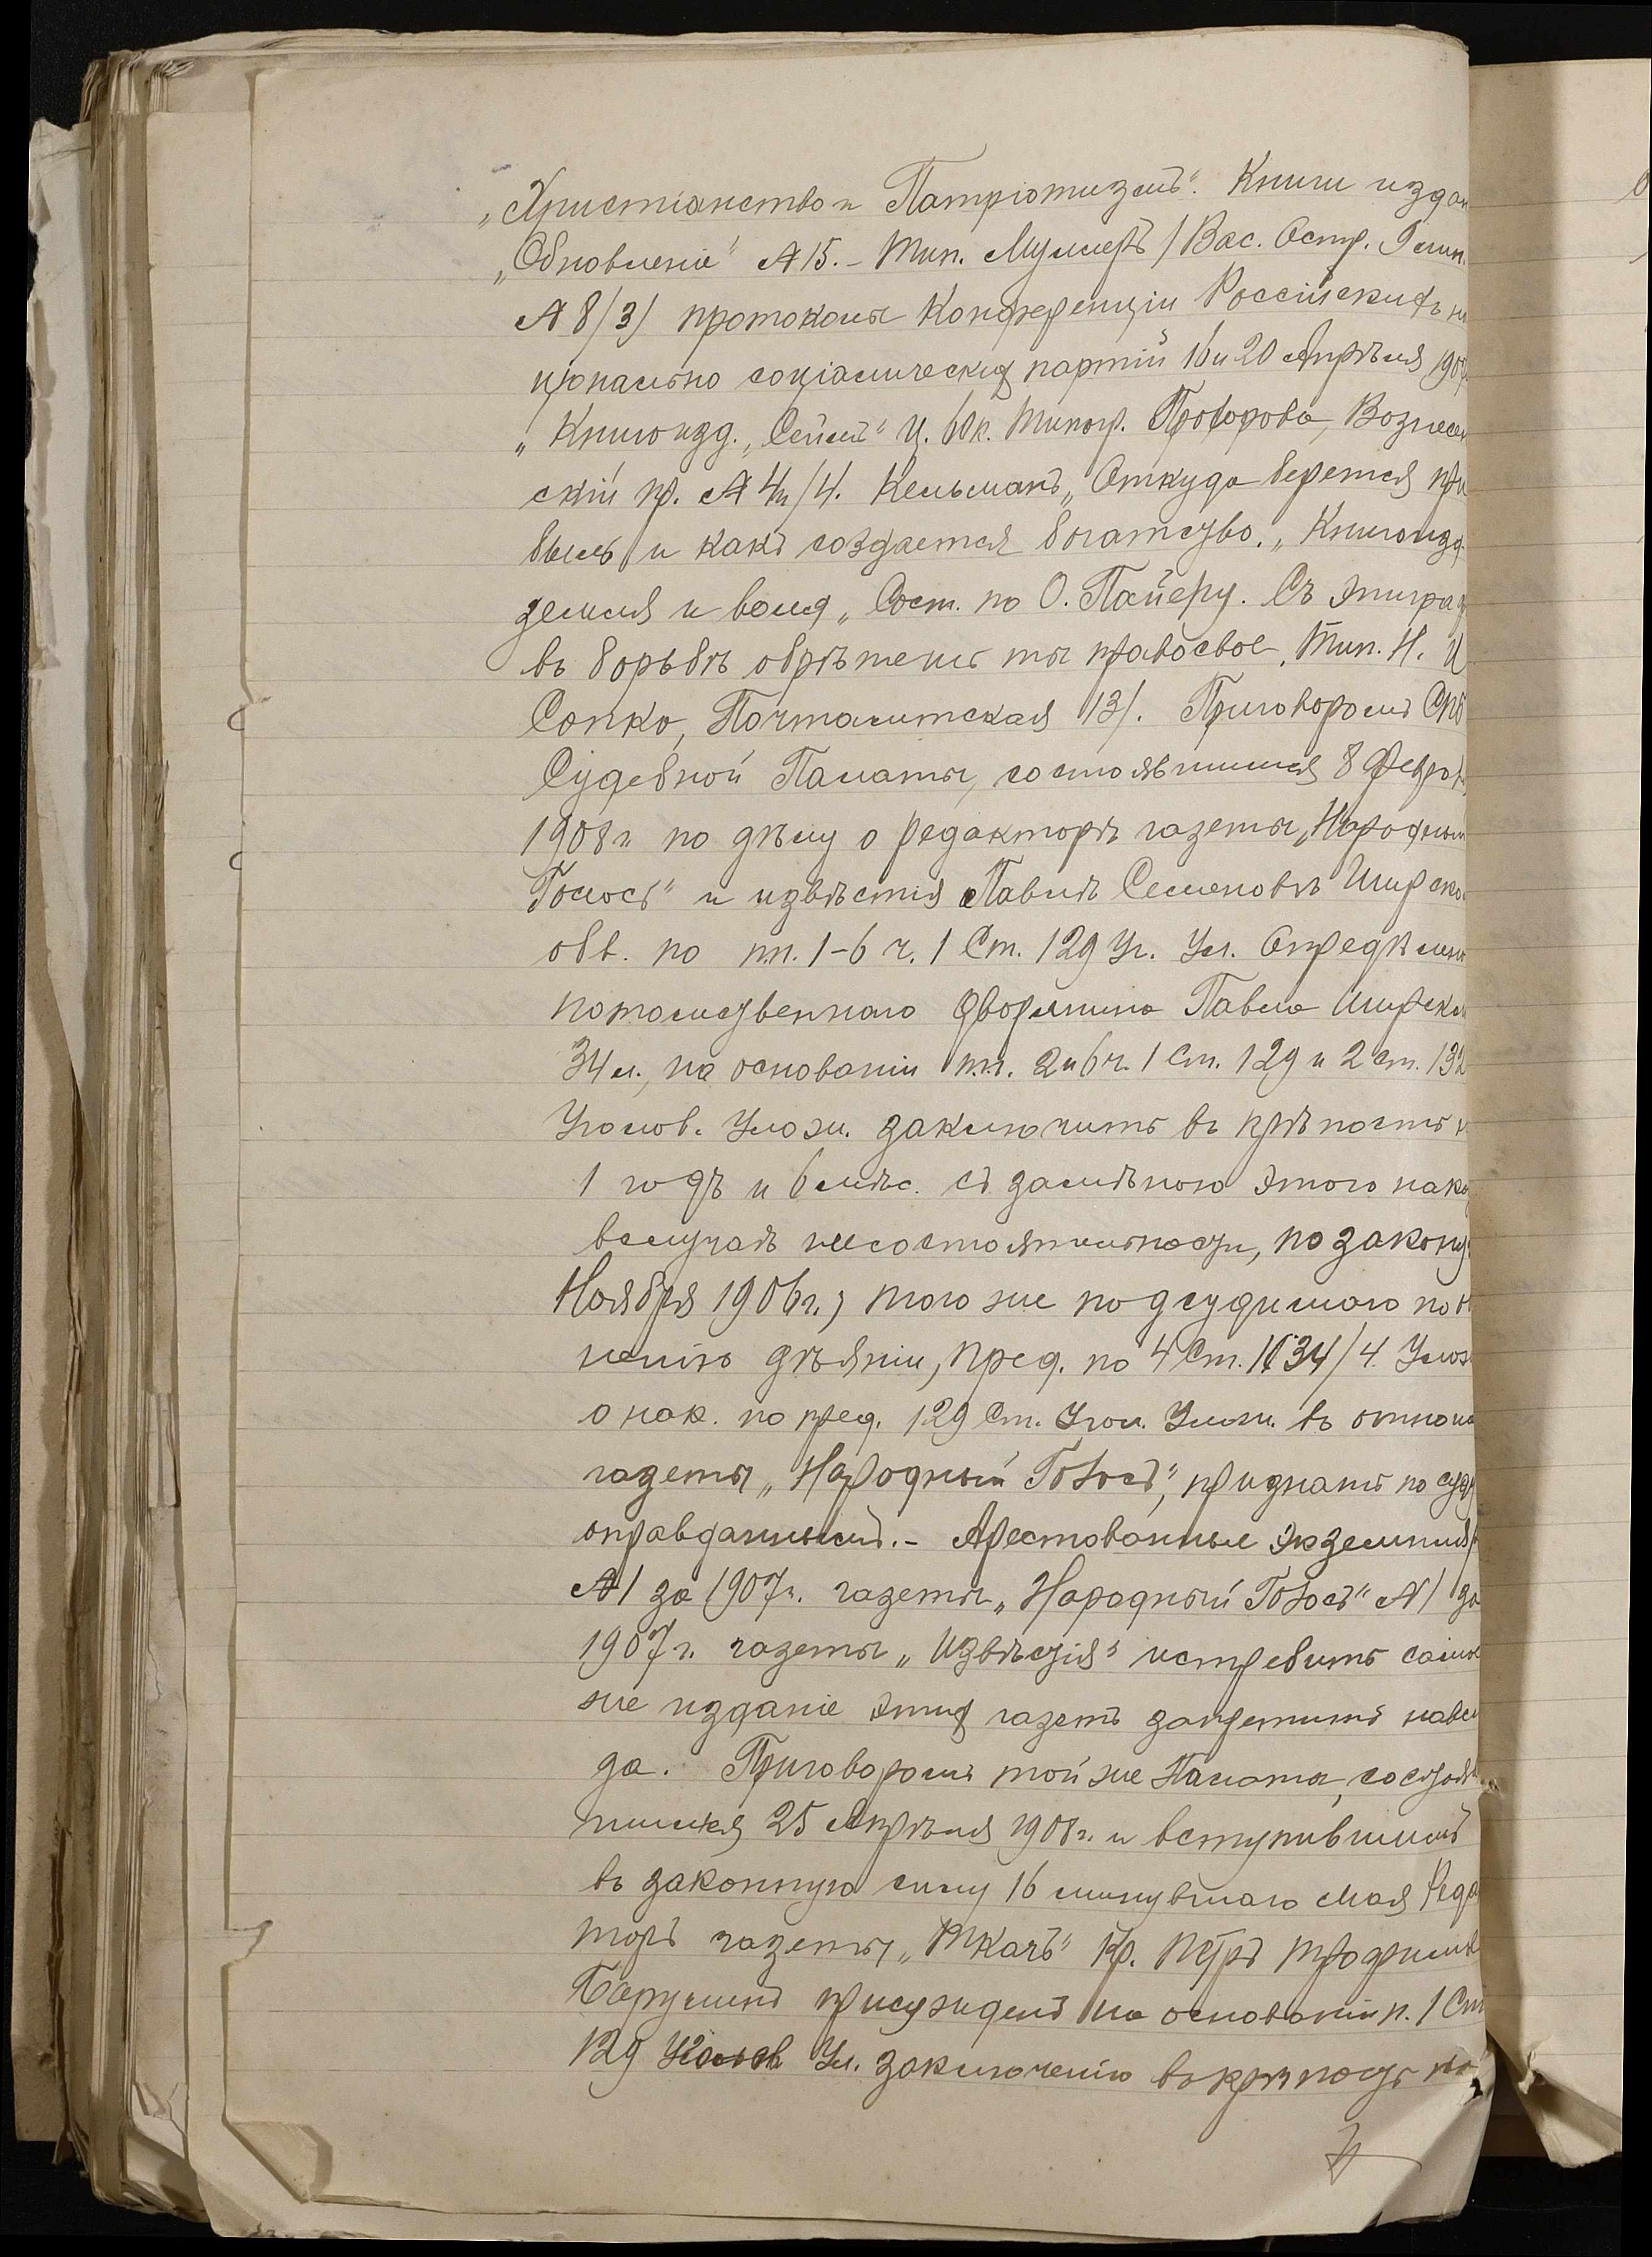 „Христіанство и Патріотизмъ". Книги издан
„Обновленіе" № 15. - Тип. Муллеръ / Вас. Остр. 9 лин.
№ 8/3/ протоколы Конференціи Россійскихъ на
ціонально соціалическихъ партій 16 и 20 Апрѣля 1907
„Книгоизд. „Сеймъ" Ц. 60 к. Типогр. Прохорова, Вознесен
скій пр. № 4/4. Кельманъ „Откуда берется при
быль и какъ создается богатство. „Книгоизд.
земля и воля „Сост. по О. Пайеру. Съ эпиграф
въ борьбѣ обрѣтешь ты право свое, Тип. Н. И
Сопко, Почтамтская 13/. Приговоромъ СПб
Судебной Палаты, состоявшимся 8 Февраля
1908 г. по дѣлу о редакторѣ газеты „Народный
Голосъ" и извѣстія Павлѣ Семеновѣ Ширско
обв. по пп. 1-6 ч. 1 Ст. 129 Уг. Ул. Опредѣлено
потомственнаго дворянина Павла Ширска
34 л., на основаніи п.п. 2 и 6 ч. 1 Ст. 129 и 2 ст. 132
Уголов. Улож. заключить въ крѣпость н
1 годъ и 6 мѣс. съ замѣною этого нака
вслучаѣ несостоятельности, по закону
Ноября 1906 г.; того же подсудимаго по об
неніи дѣяніи, пред. по 4 Ст. 1034/4. Улож
о нак. по пред. 129 Ст. Угол. Улож. въ отноше
газеты „Народный Голосъ", признать по суду
оправданнымъ. - Арестованные экземпляр
№ 1 за 1907 г. газеты „Народный Голосъ" № 1 за
1907 г. газеты „Извѣстія" истребить самое
же изданіе этихъ газетъ запретить навсег
да. Приговоромъ той же Палаты, состояв
шимся 25 Апрѣля 1908 г. и вступившимъ
въ законную силу 16 минувшаго Мая Редак
торъ газеты „Ткачъ" Кр. Петръ Трофимов
присужденъ на основаніи п. 1 Ст
129 Ул. заключенію въ крѣпость на